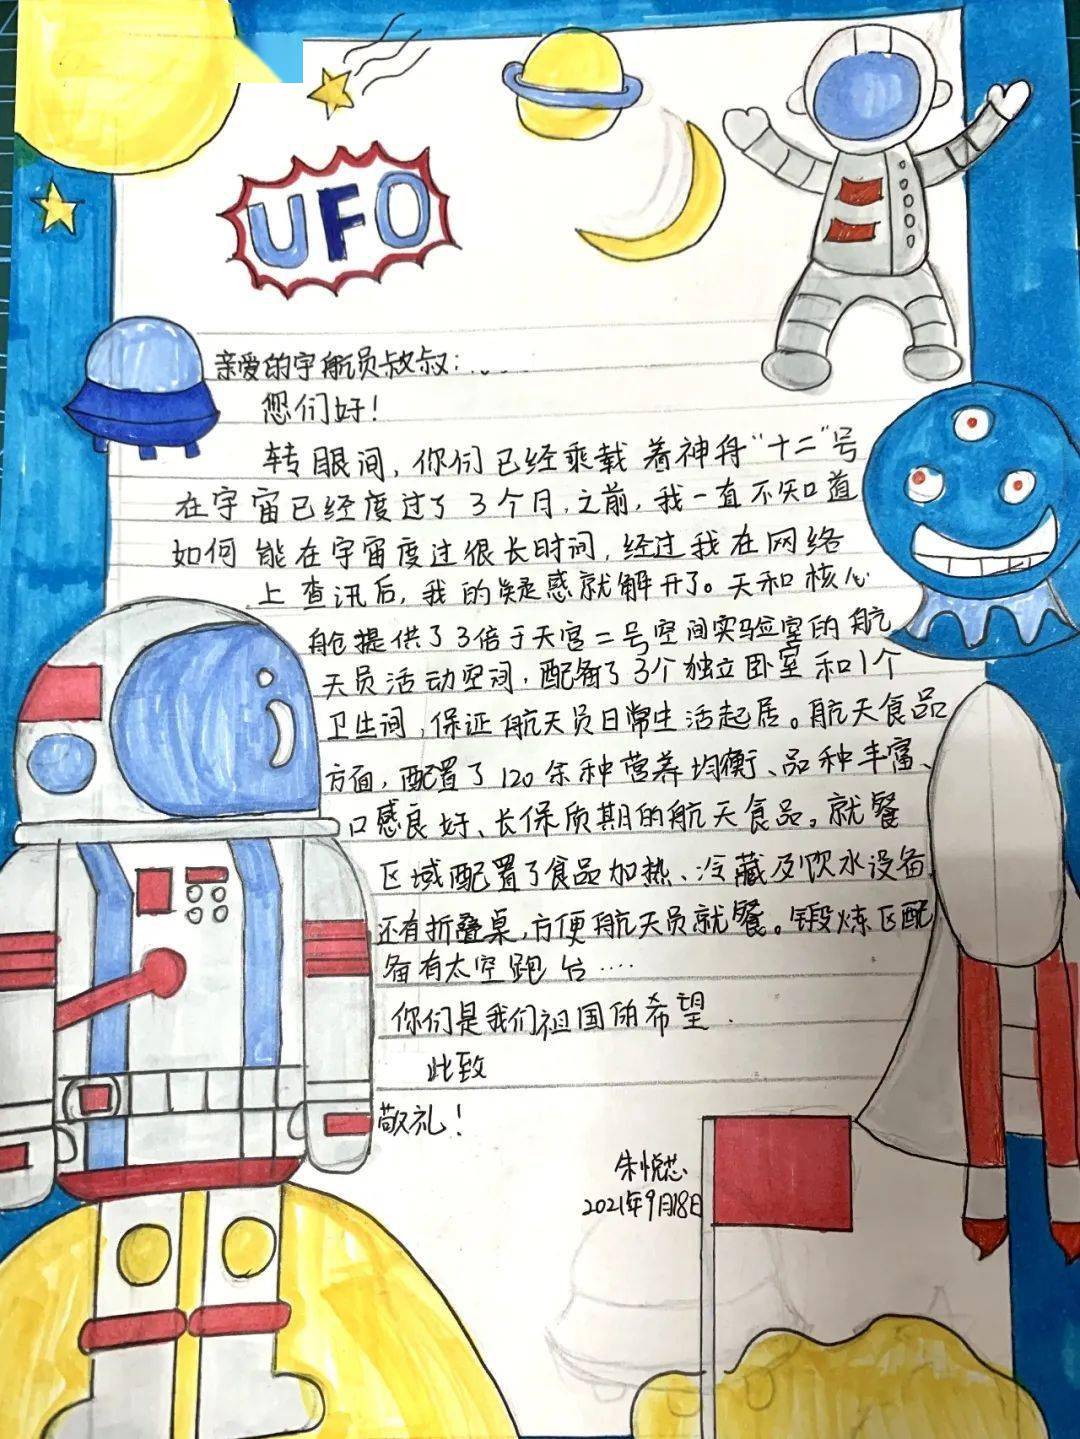 UFO
亲爱的宇航员叔叔:......
您们好!
转眼间,你们已经乘载着神舟“十二”号
在宇宙已经度过了3个月,之前,我一直不知道
如何能在宇宙度过很长时间,经过我在网络
上查讯后,我的疑惑就解开了。天和核心
舱提供了3倍于天宫二号空间实验室的航
天员活动空间,配备了3个独立卧室和1个
卫生间,保证航天员日常生活起居。航天食品
方面,配置了120余种营养均衡、品种丰富、
口感良好、长保质期的航天食品。就餐
区域配置了食品加热、冷藏及饮水设备,
还有折叠桌,方便航天员就餐。锻炼区配
备有太空跑台....
你们是我们祖国的希望.
此致
敬礼!
朱悦芯
2021年9月18日